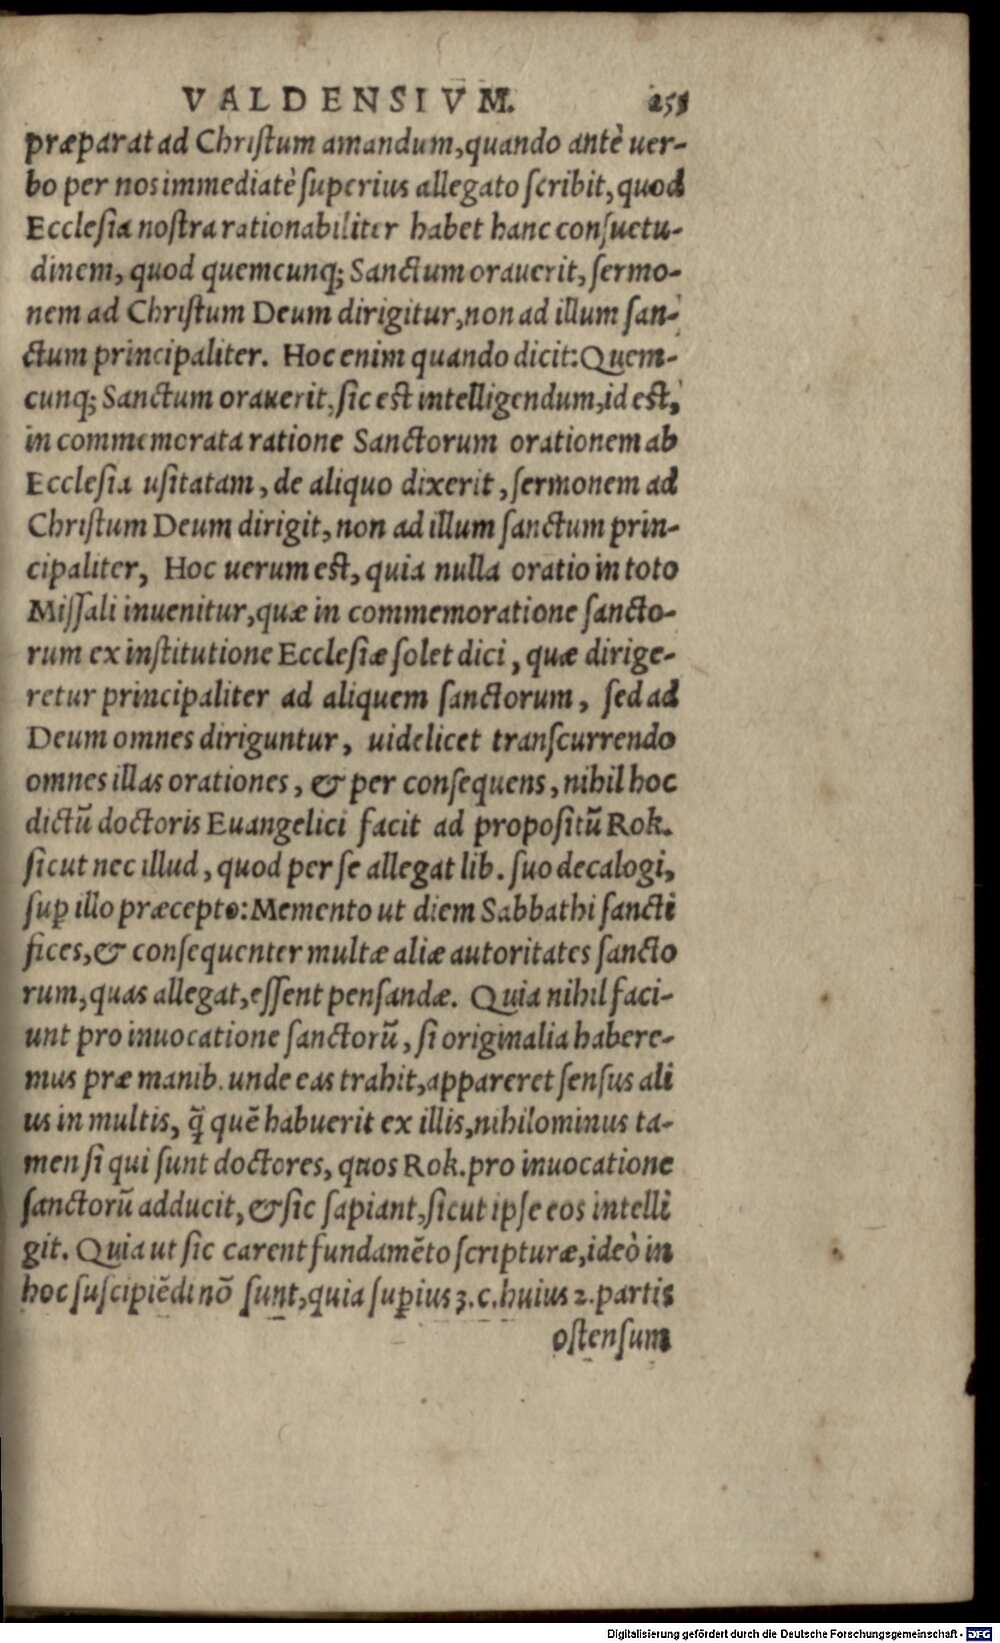 VALDENSIVM. 251
præparat ad Christum amandum, quando antè uer-
bo per nos immediatè superius allegato scribit, quod
Ecclesia nostra rationabiliter habet hanc consuetu-
dinem, quod quemcunq; Sanctum orauerit, sermo-
nem ad Christum Deum dirigitur, non ad illum san-
ctum principaliter. Hoc enim quando dicit: Quem-
cunq; Sanctum orauerit, sic est intelligendum, id est,
in commemorata ratione Sanctorum orationem ab
Ecclesia usitatam, de aliquo dixerit, sermonem ad
Christum Deum dirigit, non ad illum sanctum prin-
cipaliter, Hoc uerum est, quia nulla oratio in toto
Missali inuenitur, quæ in commemoratione sancto-
rum ex institutione Ecclesiæ solet dici, quæ dirige-
retur principaliter ad aliquem sanctorum, sed ad
Deum omnes diriguntur, uidelicet transcurrendo
omnes illas orationes, & per consequens, nihil hoc
dictũ doctoris Euangelici facit ad propositũ Rok.
sicut nec illud, quod per se allegat lib. suo decalogi,
suꝑ illo præcepto: Memento ut diem Sabbathi sancti
fices, & consequenter multæ aliæ autoritates sancto
rum, quas allegat, essent pensandæ. Quia nihil faci-
unt pro inuocatione sanctorũ, si originalia habere-
mus præ manib. unde eas trahit, appareret sensus ali
us in multis, q̃ quẽ habuerit ex illis, nihilominus ta-
men si qui sunt doctores, quos Rok. pro inuocatione
sanctorũ adducit, & sic sapiant, sicut ipse eos intelli
git. Quia ut sic carent fundamẽto scripturæ, ideò in
hoc suscipiẽdi nõ sunt, quia suꝑius 3. c. huius 2. partis
ostensum
Digitalisierung gefördert durch die Deutsche Forschungsgemeinschaft - DFG